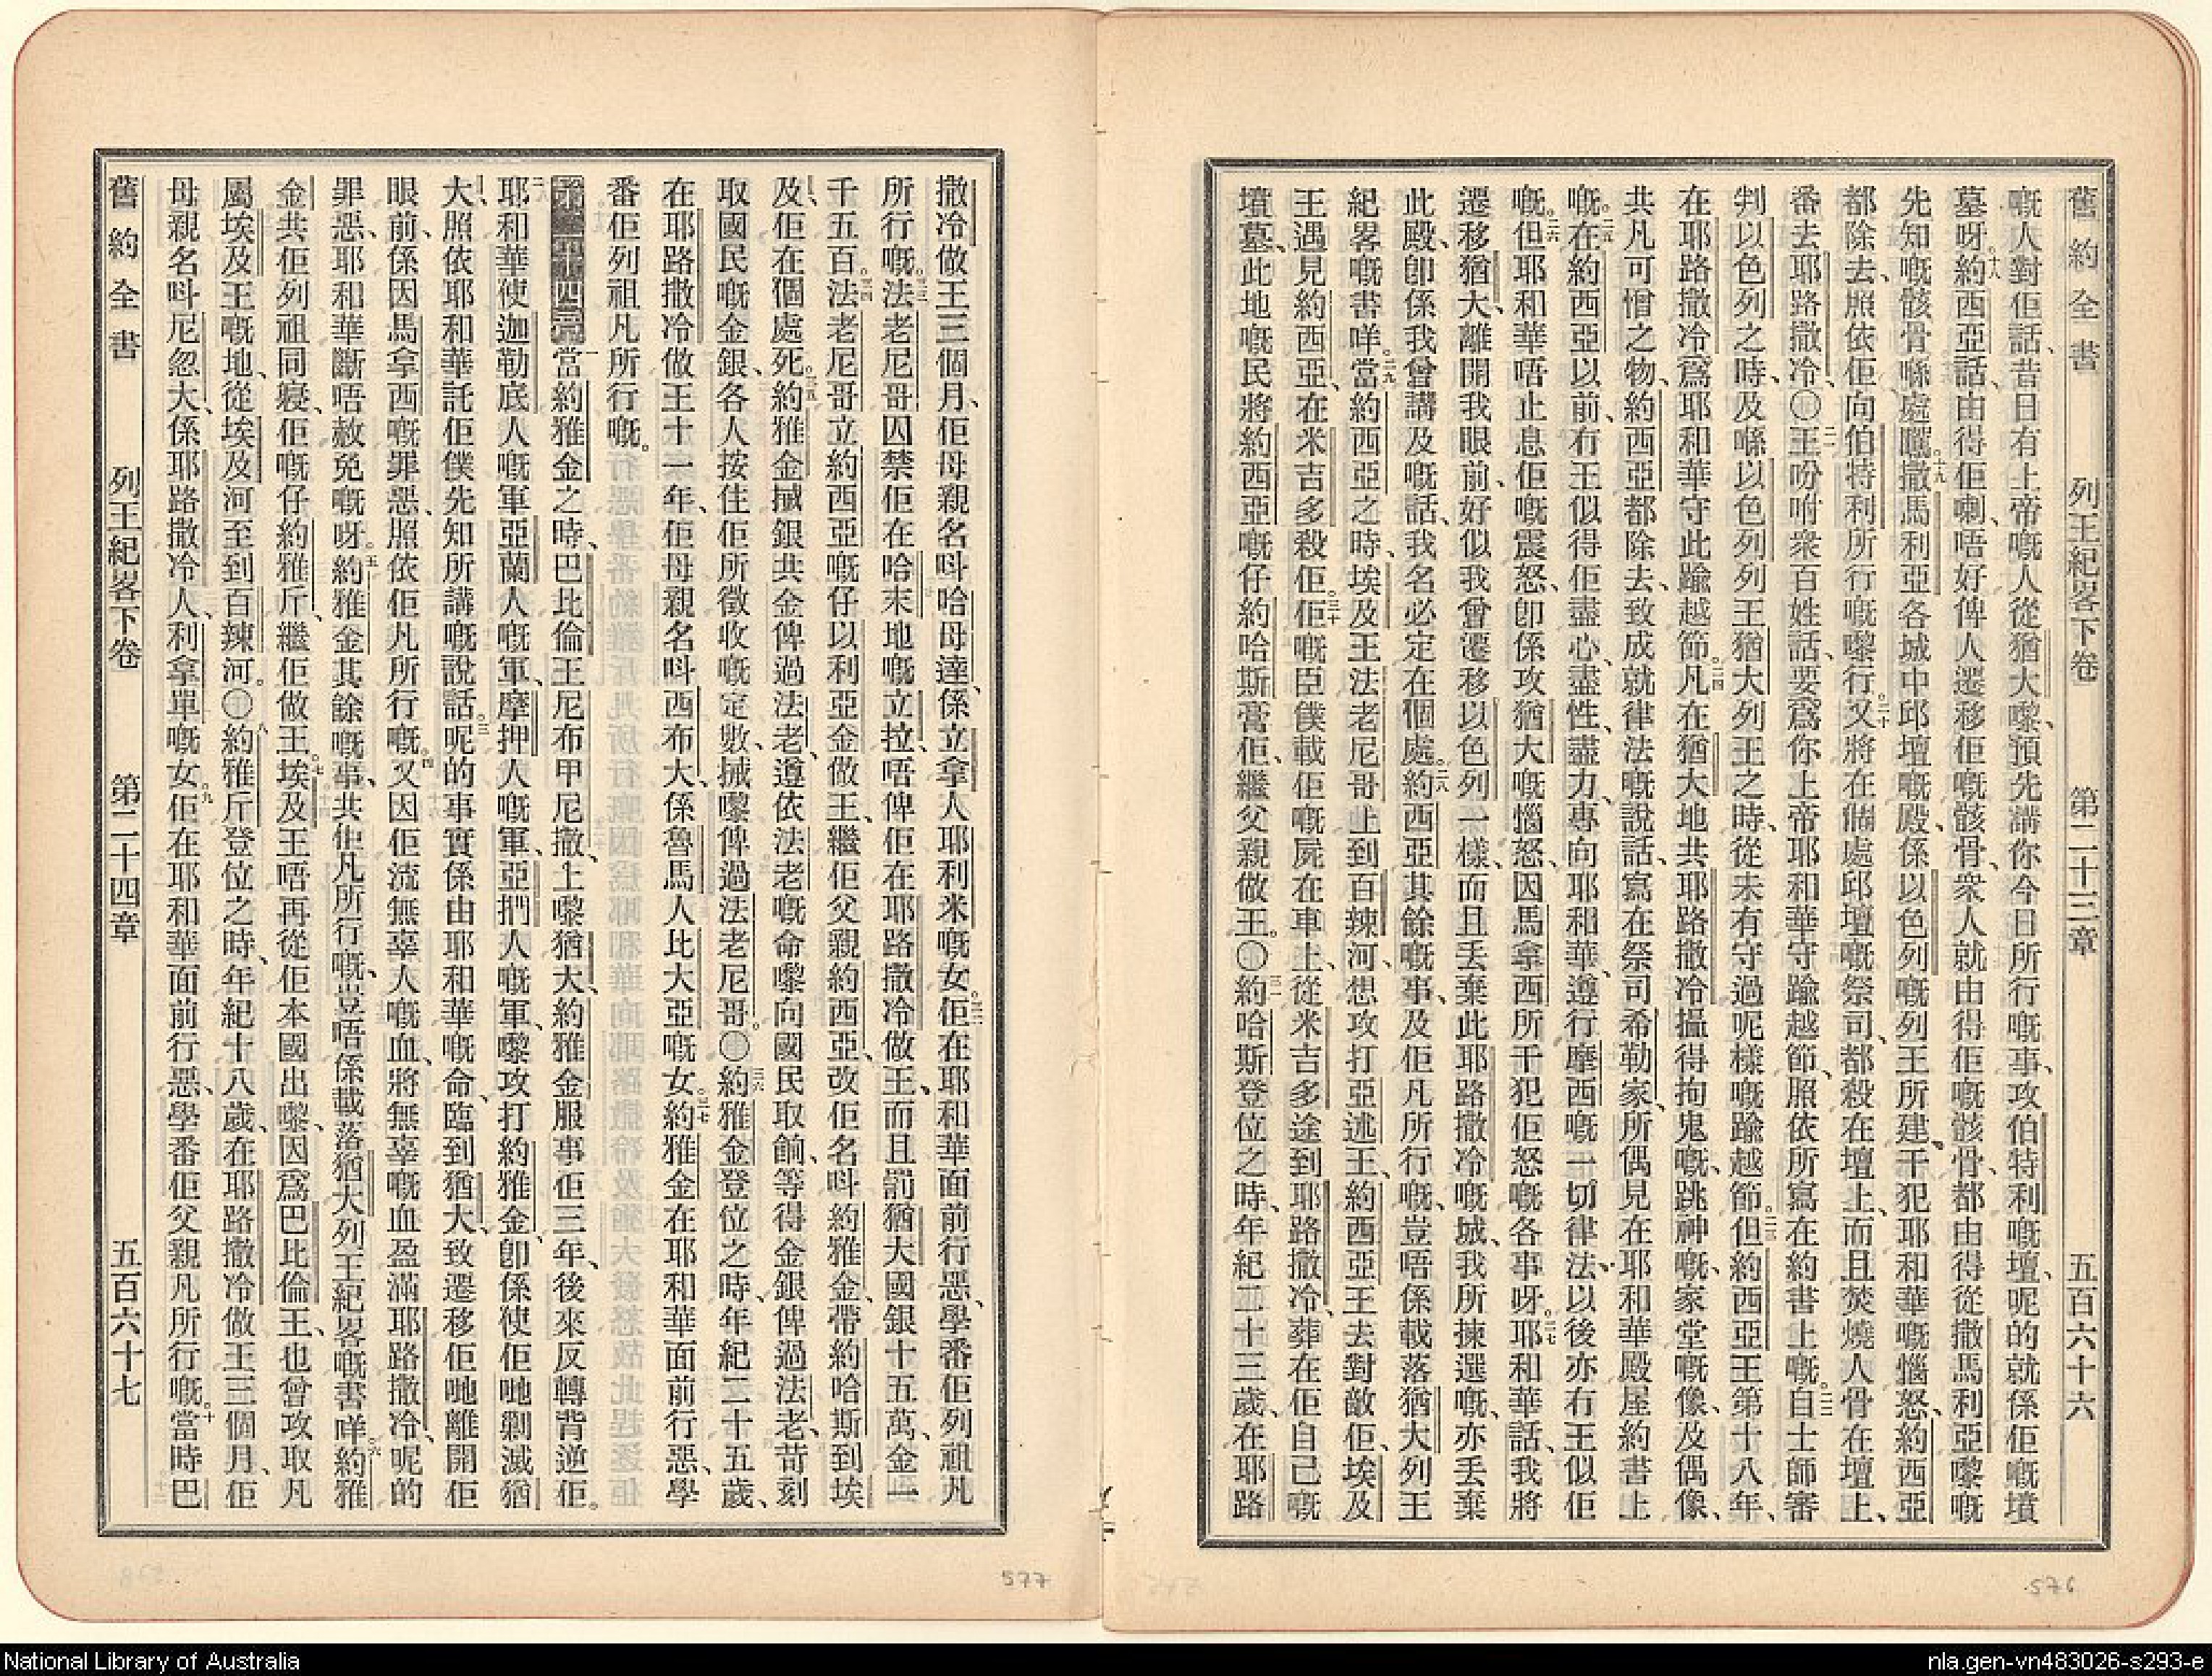 舊約全書　列王紀畧下卷　第二十三章　五百六十六
嘅人對佢話、昔日有上帝嘅人從猶大嚟、預先講你今日所行嘅事、攻伯特利嘅壇、呢的就係佢嘅墳
墓呀。十八約西亞話、由得佢喇、唔好俾人遷移佢嘅骸骨、衆人就由得佢嘅骸骨、都由得從撒馬利亞嚟嘅
先知嘅骸骨喺處囉。十九撒馬利亞各城中邱壇嘅殿、係以色列嘅列王所建、干犯耶和華嘅惱怒、約西亞
都除去、照依佢向伯特利所行嘅嚟行。二十又將在個處邱壇嘅祭司、都殺在壇上、而且焚燒人骨在壇上、
番去耶路撒冷、〇二一王吩咐衆百姓話、要爲你上帝耶和華守踰越節、照依所寫在約書上嘅。二二自士師審
判以色列之時、及喺以色列列王猶大列王之時、從未有守過呢樣嘅踰越節。二三但約西亞王第十八年、
在耶路撒冷爲耶和華守此踰越節。二四凡在猶大地共耶路撒冷攝得拘鬼嘅、跳神嘅、家堂嘅像、及偶像、
共凡可憎之物、約西亞都除去、致成就律法嘅說話、寫在祭司希勒家、所偶見在耶和華殿屋約書上
嘅。二五在約西亞以前、冇王似得佢盡心、盡性、盡力、專向耶和華、遵行摩西嘅一切律法、以後亦冇王似佢
嘅。二六但耶和華唔止息佢嘅震怒、卽係攻猶大嘅惱怒、因馬拿西所干犯佢怒嘅各事呀。二七耶和華話、我將
遷移猶大、離開我眼前、好似我曾遷移以色列一樣、而且丢棄此耶路撒冷嘅城、我所揀選嘅、亦丢棄
此殿、卽係我曾講及嘅話、我名必定在個處。二八約西亞其餘嘅事、及佢凡所行嘅、豈唔係載落猶大列王
紀畧嘅書咩。二九當約西亞之時、埃及王法老尼哥上到百辣河、想攻打亞述王、約西亞王去對敵佢、埃及
王遇見約西亞、在米吉多殺佢。三十佢嘅臣僕載佢嘅屍在車上、從米吉多途到耶路撒冷、葬在佢自己嘅
墳墓、此地嘅民將約西亞嘅仔約哈斯膏佢、繼父親做王。〇三一約哈斯登位之時、年紀二十三歲、在耶路
撒冷做王三個月、佢母親名呌哈母達、係立拿人耶利米嘅女。三二佢在耶和華面前行惡、學番佢列祖凡
所行嘅。三三法老尼哥囚禁佢在哈末地嘅立拉、唔俾佢在耶路撒冷做王、而且罰猶大國銀十五萬、金一
千五百。三四法老尼哥立約西亞嘅仔以利亞金做王、繼佢父親約西亞、改佢名呌約雅金、帶約哈斯到埃
及、佢在個處死。三五約雅金搣銀共金俾過法老、遵依法老嘅命嚟向國民取餉、等得金銀俾過法老、苛刻
取國民嘅金銀、各人按住佢所徵收嘅定數、搣嚟俾過法老尼哥。〇三六約雅金登位之時、年紀二十五歲、
在耶路撒冷做王十一年、佢母親名呌西布大、係魯馬人比大亞嘅女。三七約雅金在耶和華面前行惡、學
番佢列祖凡所行嘅。
第二十四章一當約雅金之時、巴比倫王尼布甲尼撒、上嚟猶大、約雅金服事佢三年、後來反轉背逆佢。
二耶和華使迦勒底人嘅軍、亞蘭人嘅軍、摩押人嘅軍、亞捫人嘅軍、嚟攻打約雅金、卽係使佢哋剿滅猶
大、照依耶和華託佢僕先知所講嘅說話。三呢的事實係由耶和華嘅命、臨到猶大、致遷移佢哋離開佢
眼前、係因馬拿西嘅罪惡、照依佢凡所行嘅。四又因佢流無辜人嘅血、將無辜嘅血盈滿耶路撒冷、呢的
罪惡、耶和華斷唔赦免嘅呀。五約雅金其餘嘅事、共佢凡所行嘅、豈唔係載落猶大列王紀畧嘅書咩。六約雅
金共佢列祖同寢、佢嘅仔約雅斤、繼佢做王。七埃及王唔再從佢本國出嚟、因爲巴比倫王、也曾攻取凡
屬埃及王嘅地、從埃及河至到百辣河。〇八約雅斤登位之時、年紀十八歲、在耶路撒冷做王三個月、佢
母親名呌尼忽大、係耶路撒冷人、利拿單嘅女。九佢在耶和華面前行惡、學番佢父親凡所行嘅。十當時巴
舊約全書　列王紀畧下卷　第二十四章　五百六十七
577
576
National Library of Australia
nla.gen-vn483026-s293-e